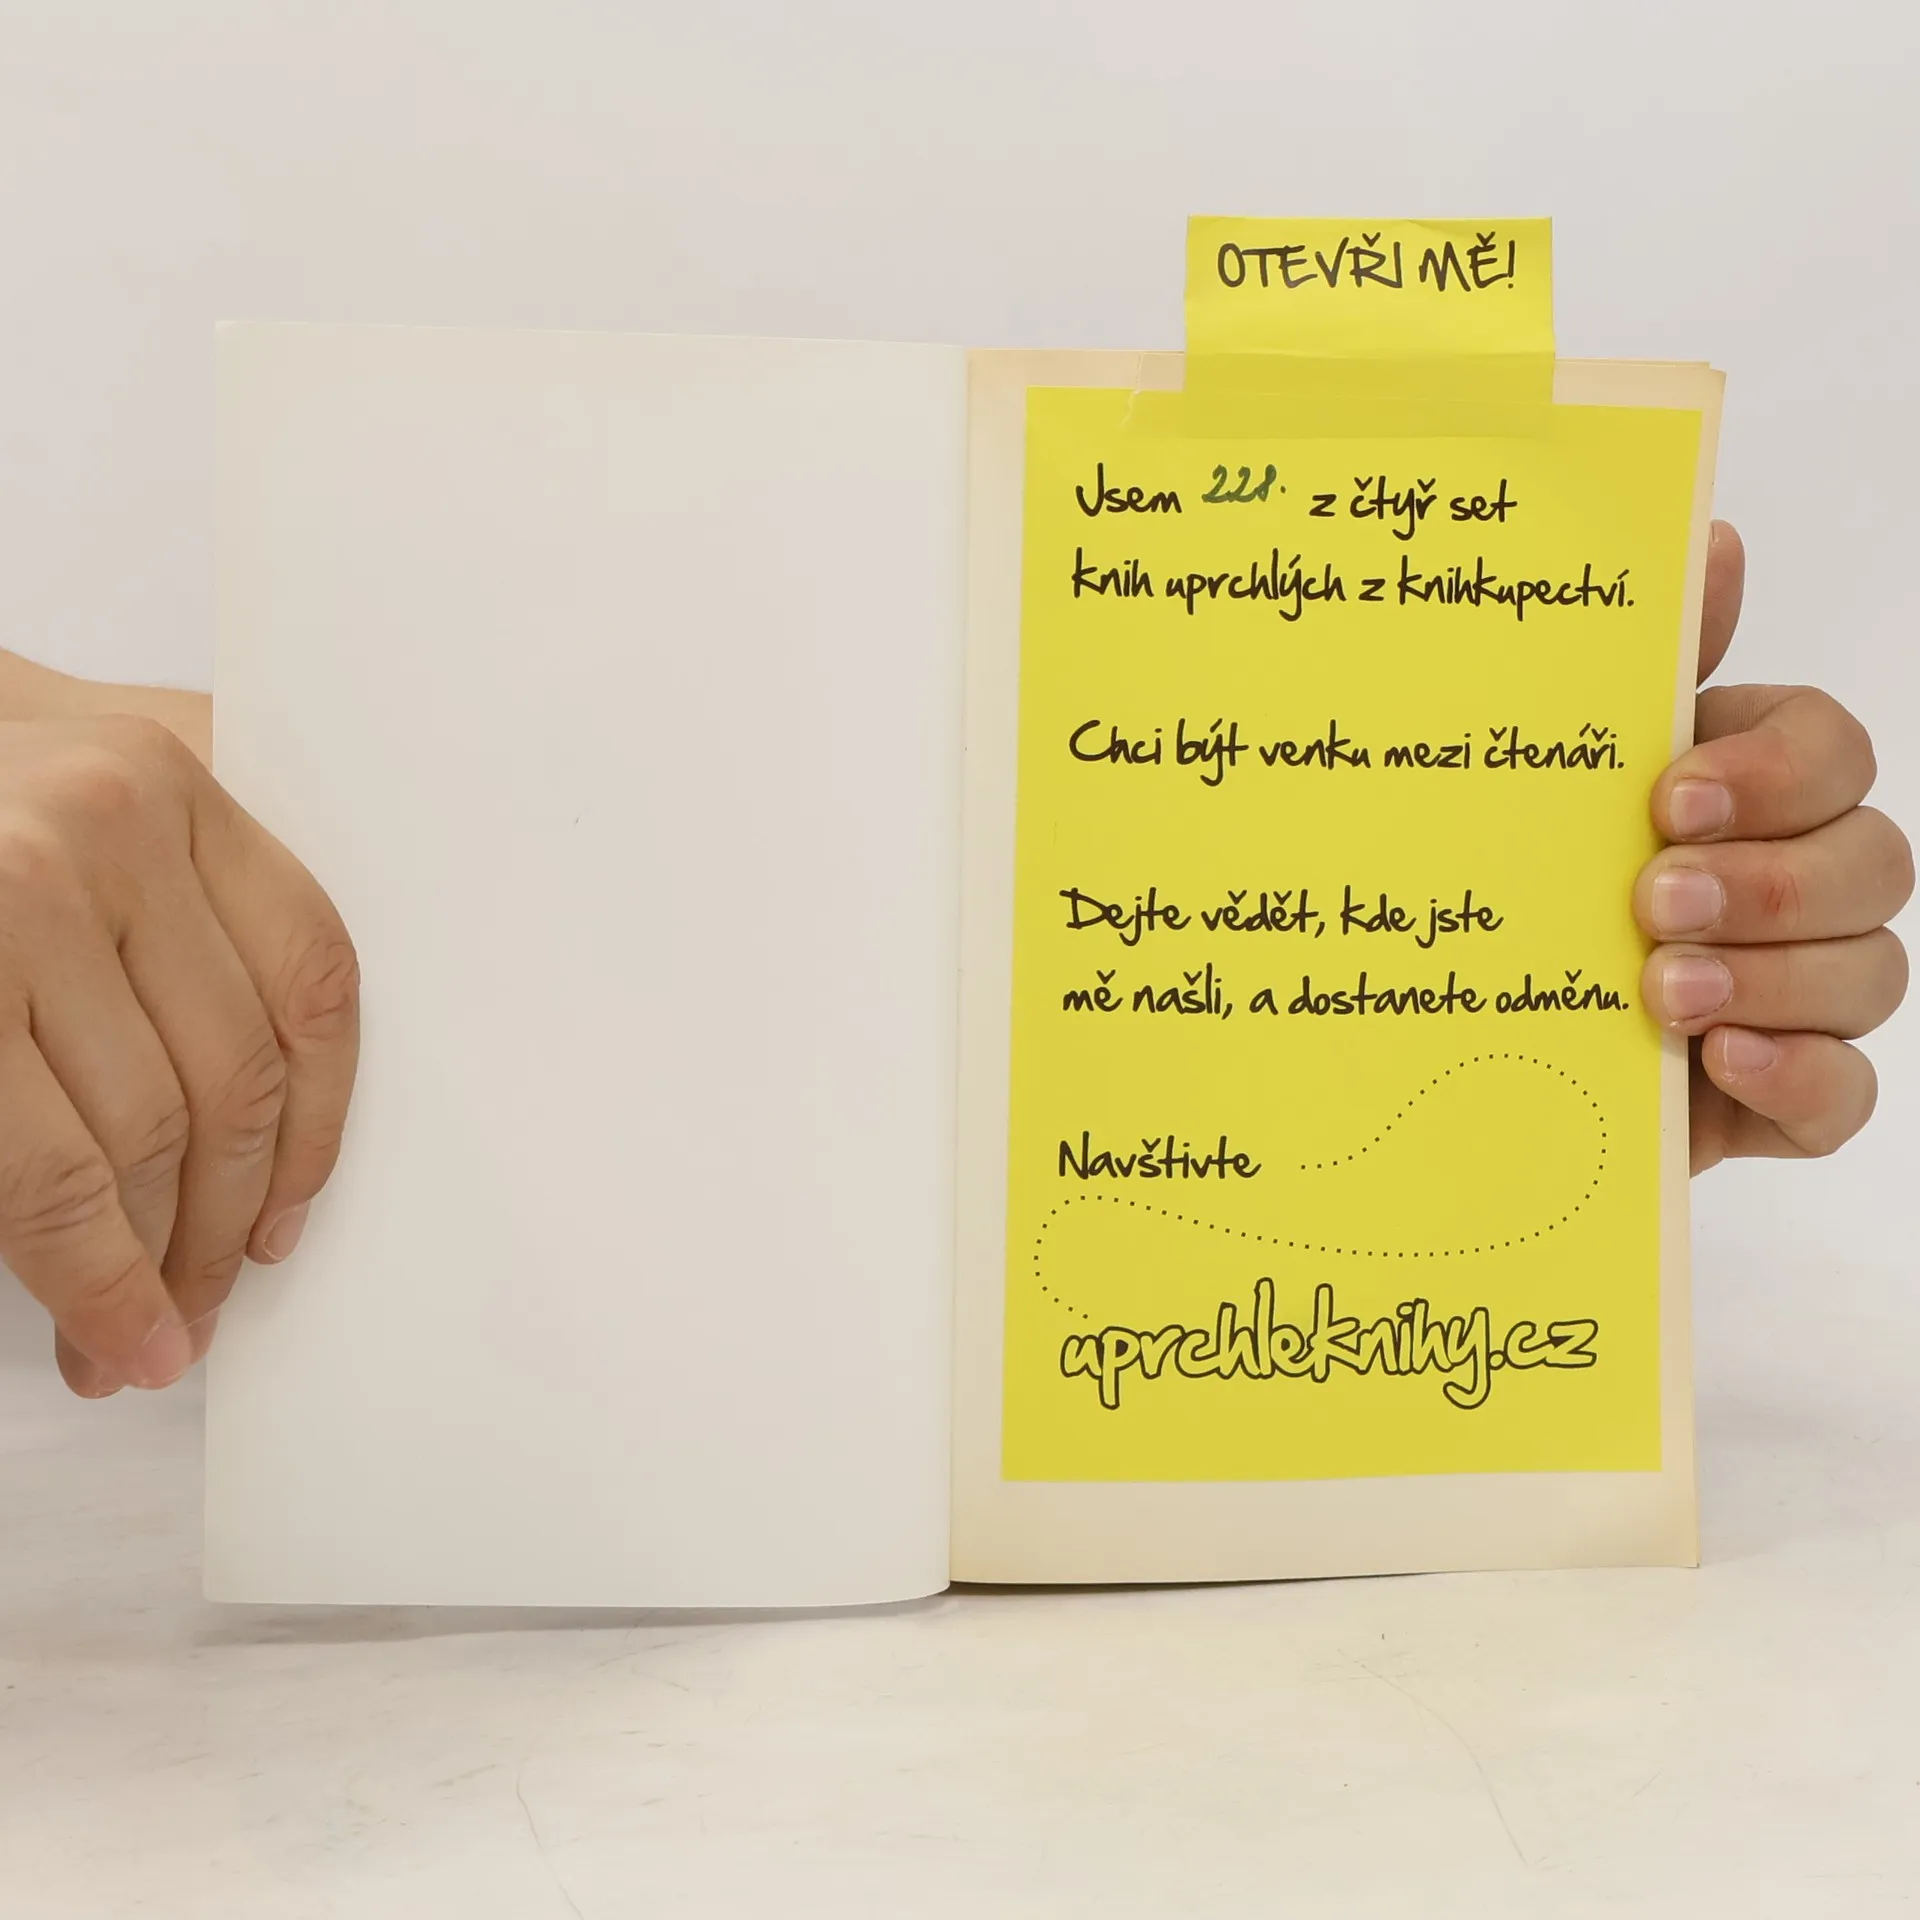 OTEVŘI MĚ!
Jsem 228. z čtyř set
knih uprchlých z knihkupectví.
Chci být venku mezi čtenáři.
Dejte vědět, kde jste
mě našli, a dostanete odměnu.
Navštivte
uprchleknihy.cz